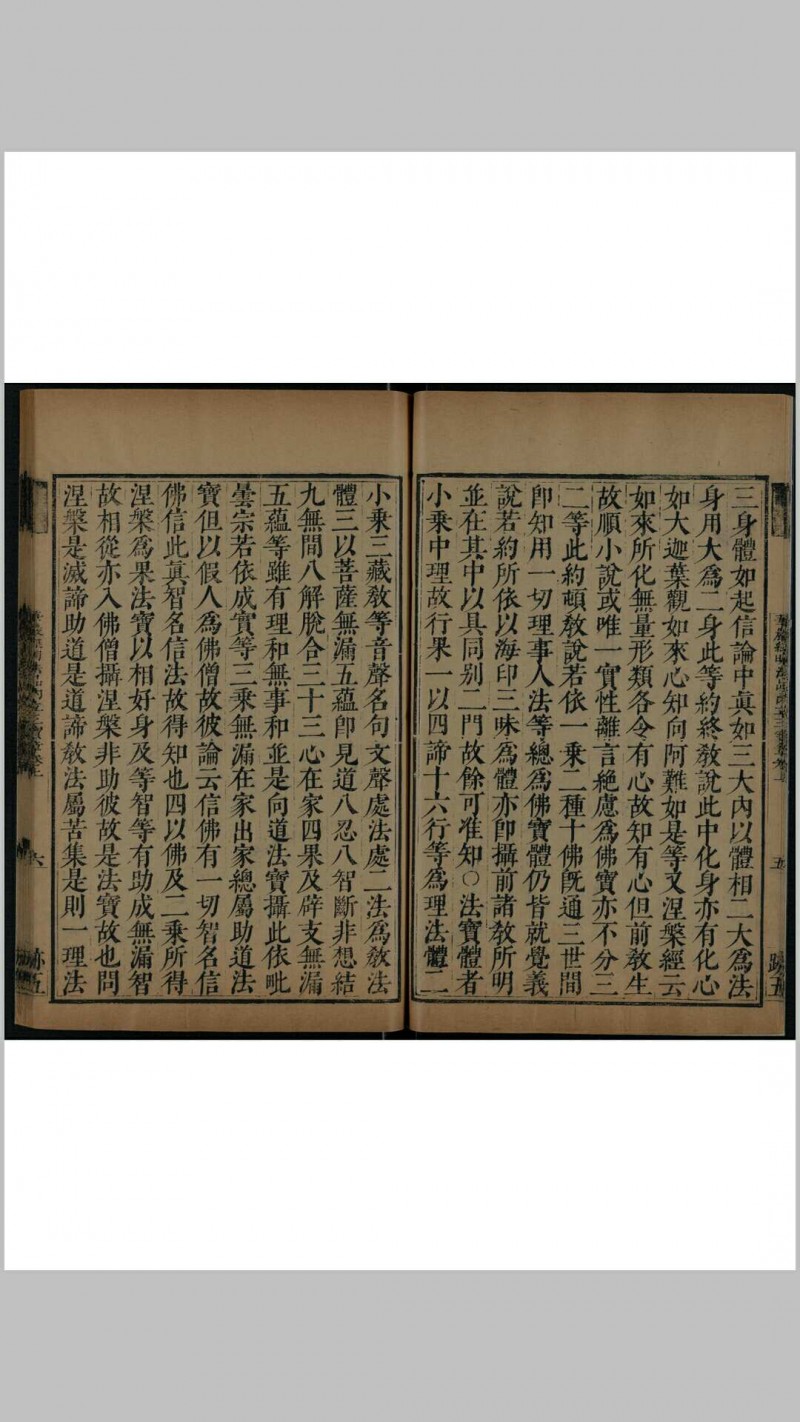 三身體如起信論中眞如三大內以體相二大爲法
身用大爲二身此等約終敎說此中化身亦有化心
如大迦葉觀如來心知向阿難如是等又涅槃經云
如來所化無量形類各令有心故知有心但前敎生
故順小說或唯一實性離言絶慮爲佛寶亦不分三
二等此約頓敎說若依一乘二種十佛旣通三世間
卽知用一切理事人法等總爲佛寶體仍皆就覺義
說若約所依以海印三昧爲體亦卽攝前諸敎所明
並在其中以具同别二門故餘可准知○法寶體者
小乘中理故行果一以四諦十六行等爲理法體二
小乘三藏敎等音聲名句文聲處法處二法爲敎法
體三以菩薩無漏五蘊卽見道八忍八智斷非想結
九無間八解脫合三十三心在家四果及辟支無漏
五蘊等雖有理和無事和並是向道法寶攝此依毗
曇宗若依成實等三乘無漏在家出家總屬助道法
寶但以假人爲佛僧故彼論云信佛有一切智名信
佛信此眞智名信法故得知也四以佛及二乘所得
涅槃爲果法寶以相好身及等智等有助成無漏智
故相從亦入佛僧攝涅槃非助彼故是法寶故也問
涅槃是滅諦助道是道諦敎法屬苦集是則一理法
五
六
跡五